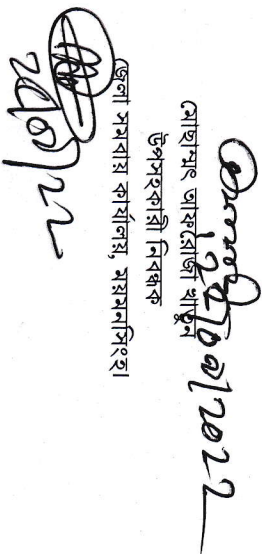 ২৫/০৯/২০২২
মোছাম্মৎ আফরোজা খাতুন
উপসহকারী নিবন্ধক
জেলা সমবায় কার্যালয়, ময়মনসিংহ।